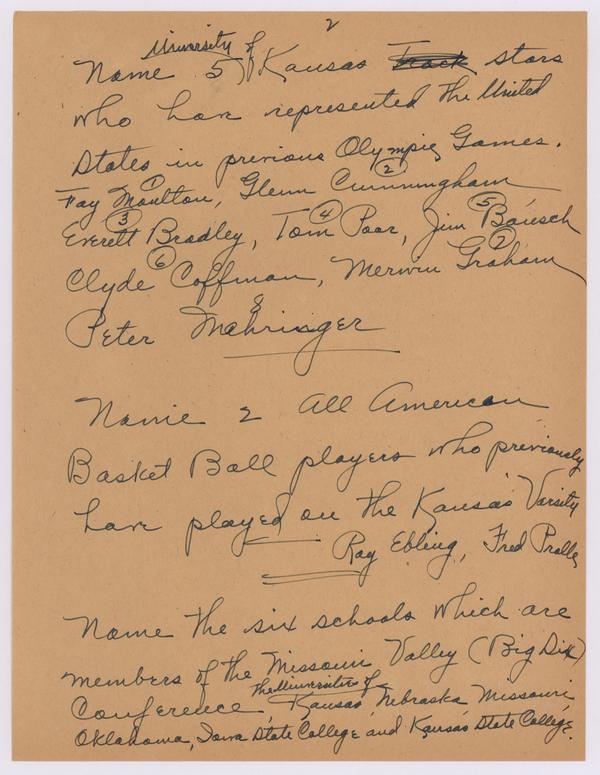 2
University of
Name 5 Kansas Track stars
who have represented the United
States in previous Olympic Games.
1 2
Fay Moulton, Glenn Cunningham
3 4 5
Everett Bradley, Tom Poor, Jim Bausch
6 7
Clyde Coffman, Merwin Graham
8
Peter Mehringer
Name 2 All American
Basket Ball players who previously
have played on the Kansas Varsity
Ray Ebling, Fred Pralle
Name the six schools which are
members of the Missouri Valley (Big Six)
The Universities of
Conference, Kansas, Nebraska, Missouri
Oklahoma, Iowa State College and Kansas State College.